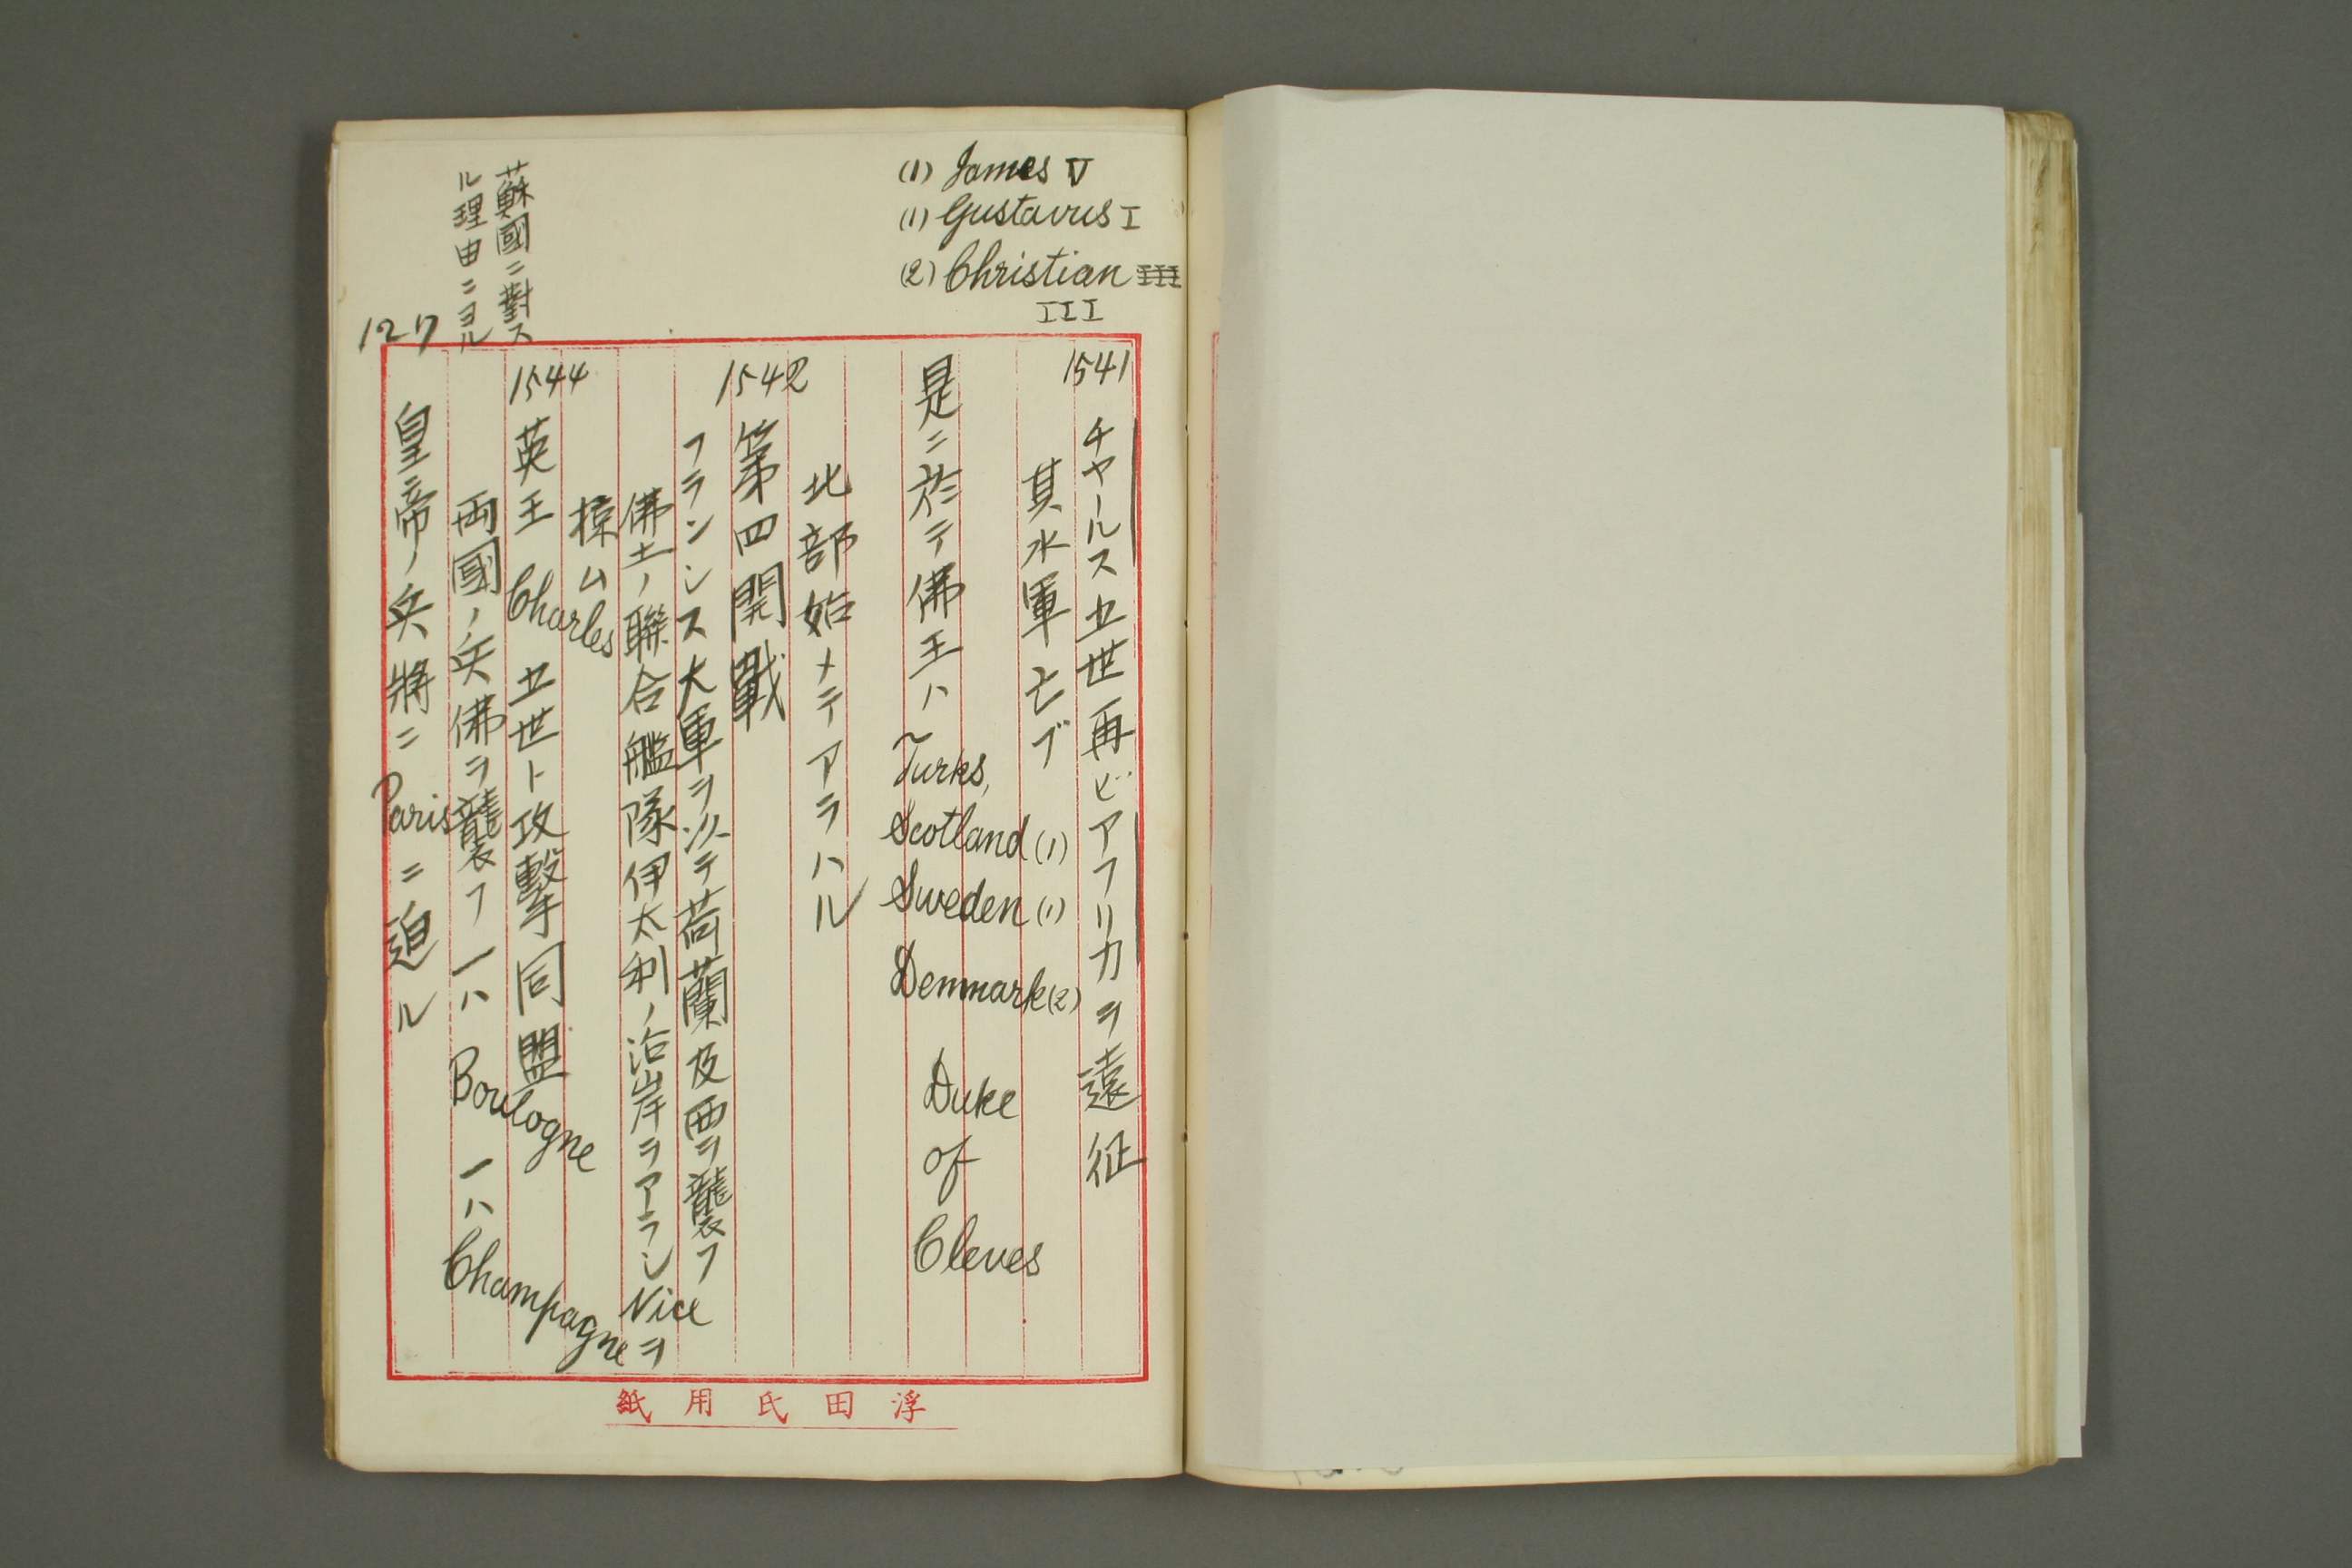 (1) James V
(1) Gustavus I
(2) Christian III
III
蘇國ニ對ス
ル理由ニヨル
127
1541 チャールス五世再ビアフリカヲ遠征
其水軍亡ブ
是ニ於テ佛王ハ〜Turks, Scotland (1) Sweden (1) Denmark (2) Duke of Cleves
北部始メテアラハル
1542 第四開戰
フランシス大軍ヲ以テ荷蘭及西ヲ襲フ
佛土ノ聯合艦隊伊太利ノ沿岸ヲアラシNiceヲ
掠ム
1544 英王 Charles 五世ト攻擊同盟
両國ノ兵佛ヲ襲フ 一ハ Boulogne 一ハ Champagne
皇帝ノ兵將ニParisニ迫ル
浮田氏用紙